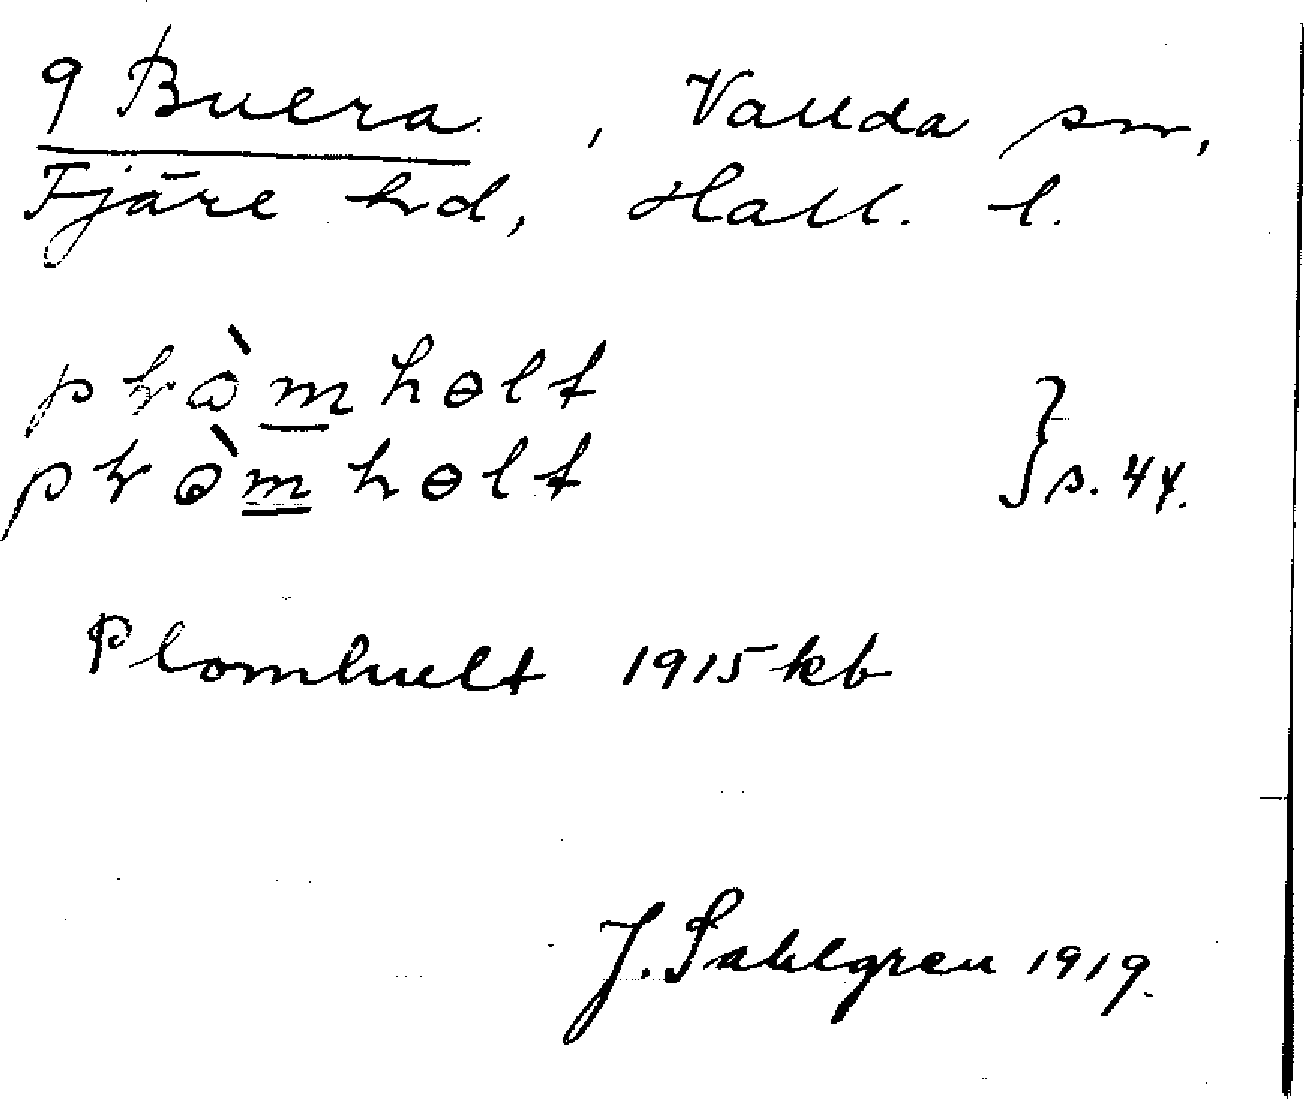 9 Buera, Vallda sn,
Fjäre hd, Hall. l.
prὰmhɵlt
pròmhɵlt } s. 44.
Plomhult 1915 kb
J. Sahlgren 1919.